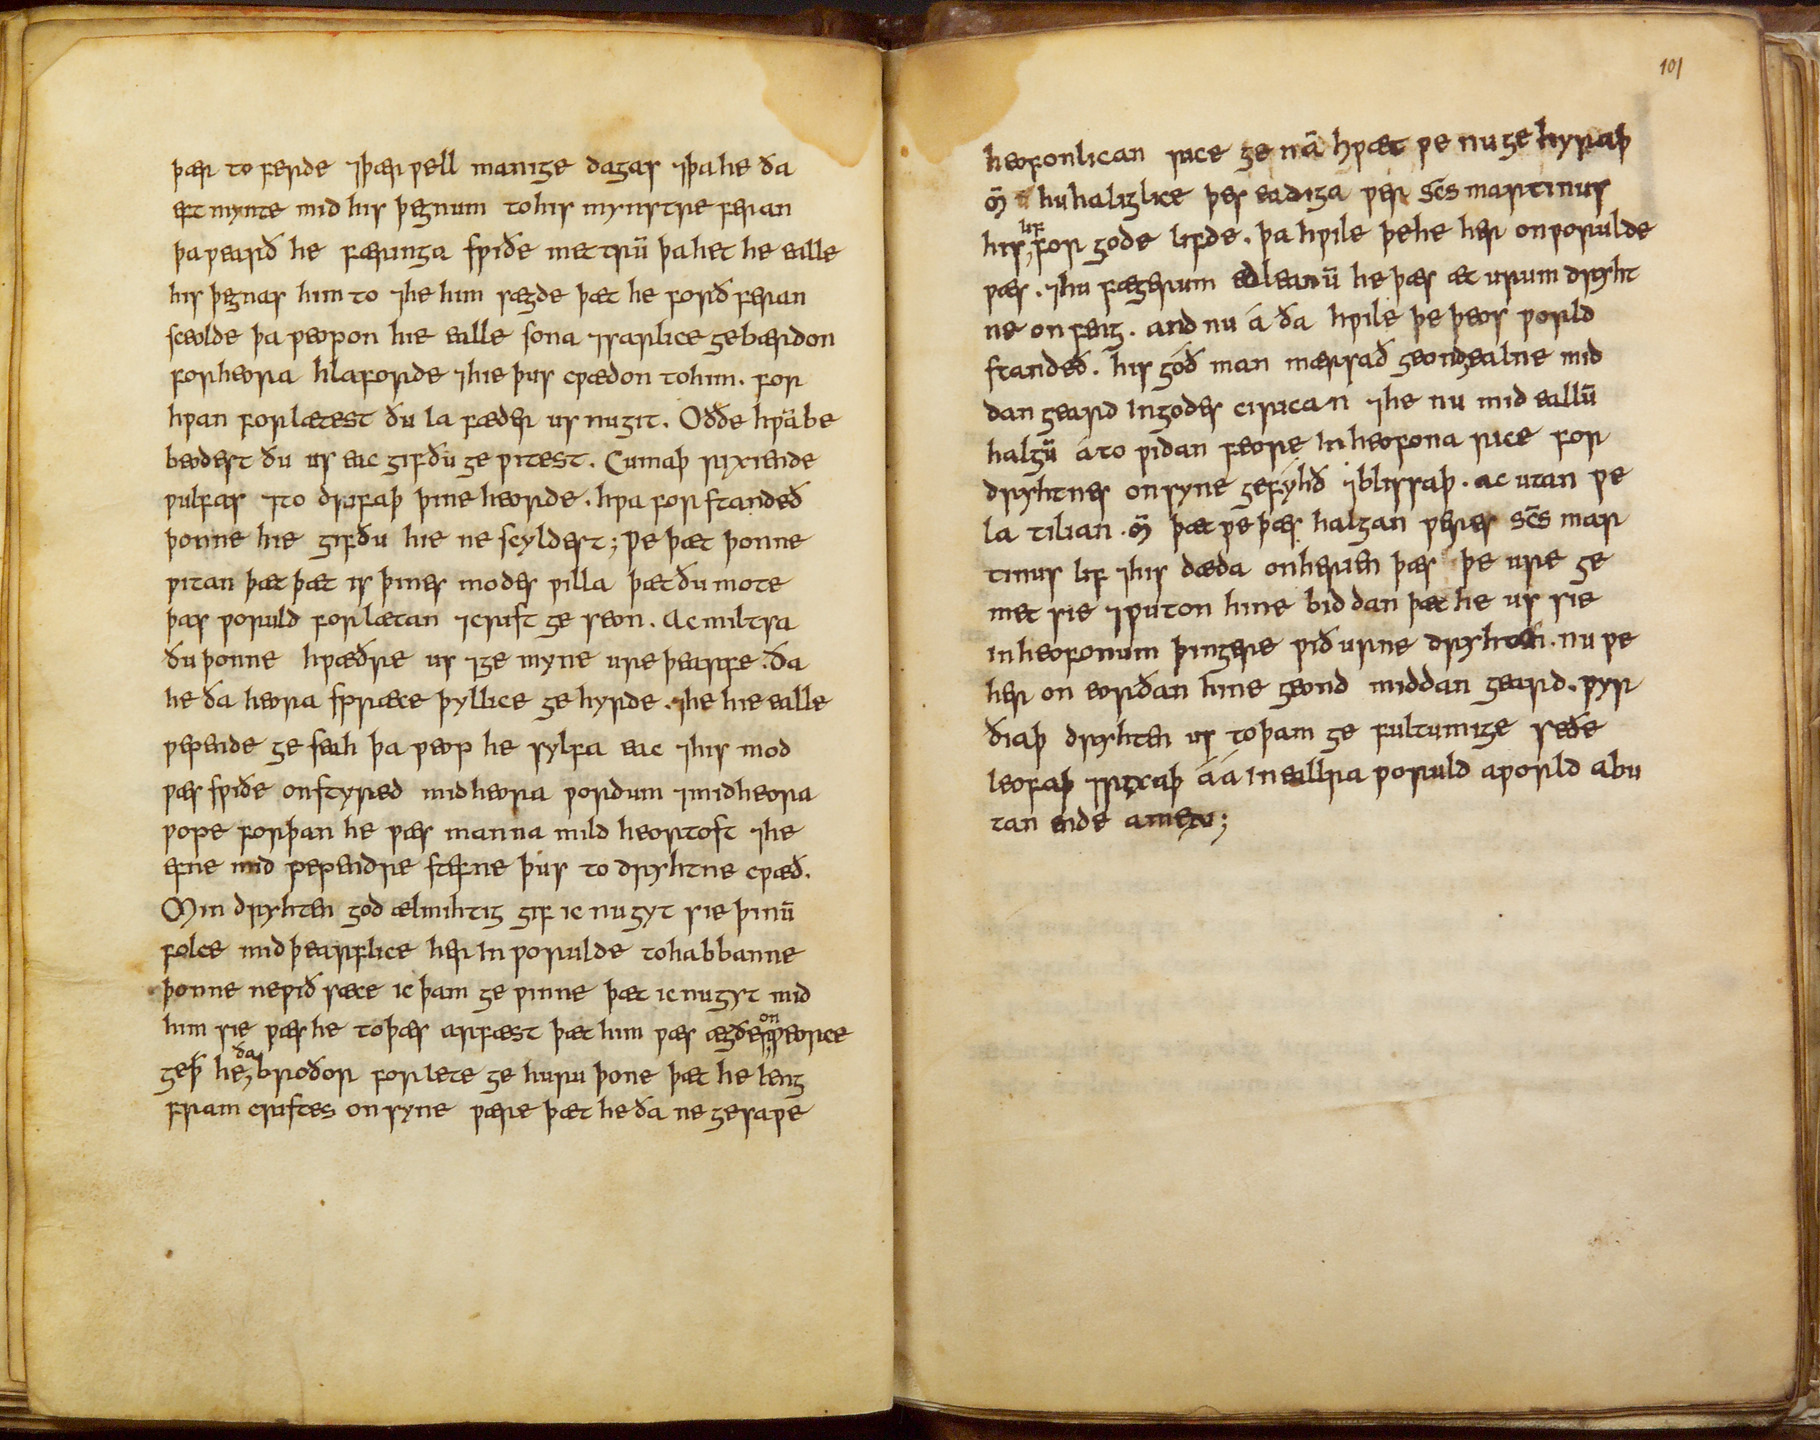 þær to ferde ⁊þær ƿell manige dagas ⁊þa he ða
eft mynte mid his þegnum to his mynstre feran
þa ƿearð he færinga sƿiðe mettrū þa het he ealle
his þegnas him to ⁊he him sægde þæt he forð feran
sceolde þa ƿeopon hie ealle sona ⁊sarlice gebærdon
for heora hlaforde ⁊hie þus cƿædon to him. for
hƿan forlætest ðu la fæder us nu git. Oððe hƿā be
beodest ðu us eac gif ðu ge ƿitest. Cumaþ rixiende
ƿulfas ⁊to drifaþ þine heorde. hƿa forstandeð
þonne hie gif ðu hie ne scyldest; Ƿe þæt þonne
ƿitan þæt þæt is þines modes ƿilla þæt ðu mote
þas ƿoruld forlætan ⁊crist ge seon. Ac miltsa
ðu þonne hƿæðre us ⁊ge myne ure þearfe. ða
he ða heora spræce þyllice ge hyrde. ⁊he hie ealle
ƿepende ge seah þa ƿeop he sylfa eac ⁊his mod
ƿæs sƿiðe onstyred mid heora ƿordum ⁊mid heora
ƿope forþan he ƿæs manna mild heortost ⁊he
efne mid ƿependre stefne þus to dryhtne cƿæð.
Min dryhten god ælmihtig gif ic nu gyt sie þinū
folce nid þearflice her in ƿorulde to habbanne
þonne ne ƿið sæce ic þam ge ƿinne þæt ic nu gyt mid
him sie ƿæs he to þæs arfæst þæt him ƿæs ægðer on ƿeorce
ge þ̄ he ða broðor forlete ge huru þone þæt he leng
fram cristes onsyne ƿære þæt he ða ne gesaƿe
heofonlican rice ge nā hƿæt ƿe nu ge hyraþ
m̄ hu haliglice þes eadiga ƿer sc̄s martinus
his lif for gode lifde. þa hƿile þe he her on ƿorulde
ƿæs. ⁊hu fægerum edleanū he þæs æt urum dryht
ne onfeng. and nu á ða hƿile þe þeos ƿorld
standeð. his gód man mærsað geond ealne mid
dan geard in godes cirican ⁊he nu mid eallū
halgū á to ƿidan feore in heofona rice for
dryhtnes onsyne gefyhð ⁊blissaþ. ac utan ƿe
la tilian. m̄ þæt ƿe þæs halgan ƿeres sc̄s mar
tinus lif ⁊his dæda onherien þæs þe ure ge
met sie ⁊ƿuton hine biddan þæt he us sie
in heofonum þingere ƿið urne dryhten. nu ƿe
her on eorðan hine geond middan geard. ƿyr
ðiaþ dryhten us to þam ge fultumige seðe
leofaþ ⁊rixaþ áá in ealra ƿoruld aƿorld abu
tan ende amen;
101